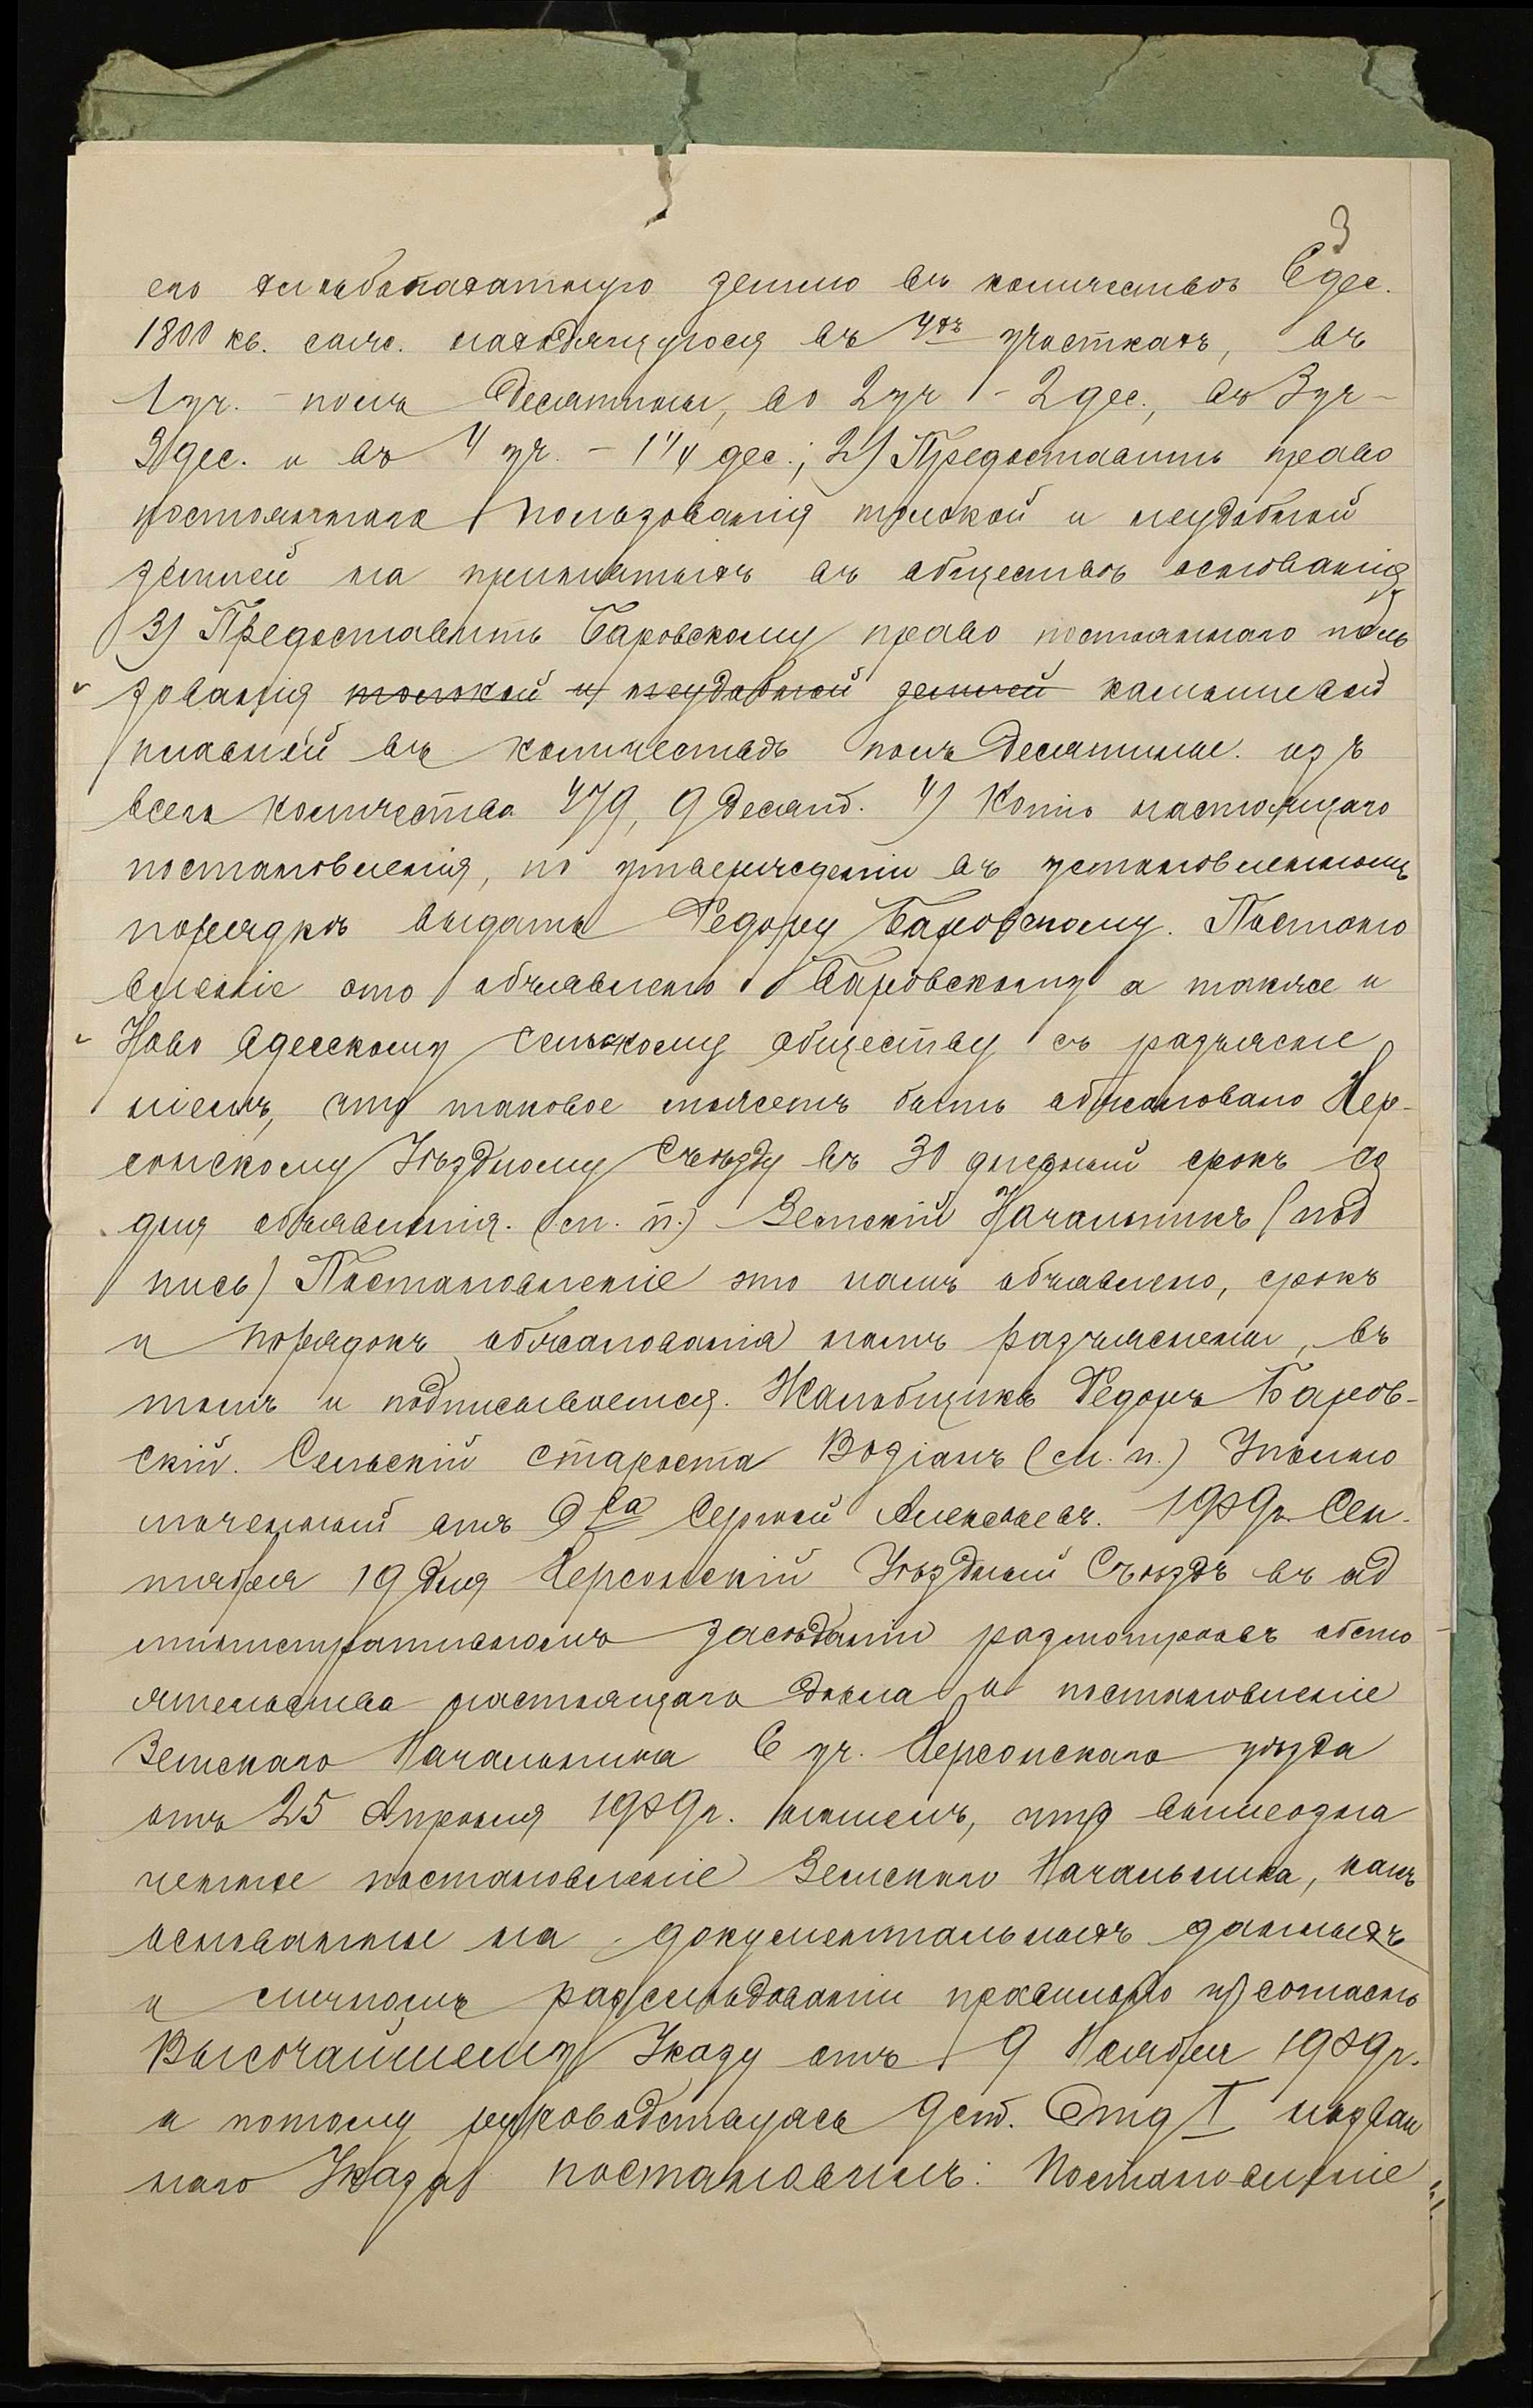 3
его хлѣбопахатную землю въ количествѣ 6 дес.
1800 кв. саж. находящуюся въ 4хъ участкахъ, въ
1 уч. - полъ десятины, во 2 уч - 2 дес., въ 3 уч -
3 дес. и въ 4 уч. - 1 1/4 дес.; 2) Предоставить право
постояннаго пользованія толокой и неудобной
землей на принятыхъ въ обществѣ основанія
3) Предоставить Баровскому право постояннаго поль
зованія толокой и неудобной землей камышевой
плавней въ количествѣ полъ десятины изъ
всего количества 479,9 десят. 4) Копію настоящаго
постановленія, по утвержденіи въ установленномъ
порядкѣ выдать Федору Баровскому. Постано
вленіе это объявлено Баровскому а также и
Ново Одесскому сельскому обществу съ разъясне
ніемъ, что таковое можетъ быть обжаловано Хер-
сонскому Уѣздному Съѣзду въ 30 дневный срокъ со
дня объявленія. (м. п.) Земскій Начальникъ (под
пись) Постановленіе это намъ объявлено, срокъ
и порядокъ обжалованія намъ разъяснены, въ
томъ и подписываемся. Жалобщикъ Федоръ Баров-
скій. Сельскій староста Водіанъ (м. п.) Уполно
моченный отъ О ва Сергѣй Алексѣевъ. 1909 г. Сен-
тября 19 дня Херсонскій Уѣздный Съѣздъ въ ад
министративномъ засѣданіи разсмотрѣвъ обсто
ятельства настоящаго дѣла и постановленіе
Земскаго Начальника 6 уч. Херсонскаго уѣзда
отъ 25 Апрѣля 1909 г. нашелъ, что вышеозна
ченное постановленіе Земскаго Начальника, какъ
основанное на документальныхъ данныхъ
и личномъ разслѣдованіи правильно и согласно
Высочайшему Указу отъ 9 Ноября 1909 г.
а потому руководствуясь 9 ст. Отд I назван
наго Указа постановилъ: Постановленіе